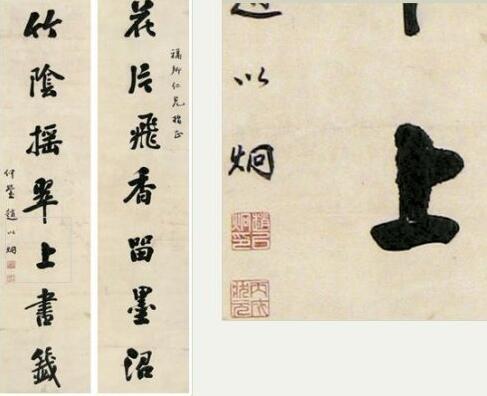 花片飛香留墨沼
福卿仁兄指正
竹陰搖翠上書籤
仲瑩趙以炯
上
以炯
趙以炯印
丙戌狀元